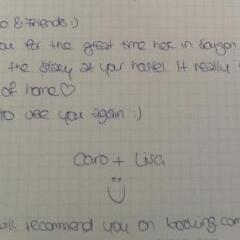 o & Friends :)
ou for the great time here in Saigon
the stay at your hostel. It really
of home♡
to see you again :)
Caro + Lisa
will recommend you on booking.com